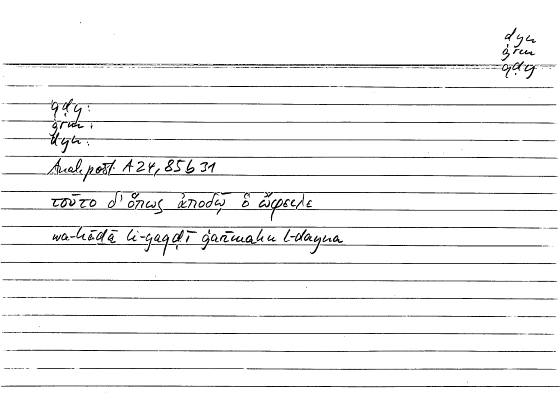 dyn
ġrm
qḍy
qḍy:
ġrm:
dyn:
Anal. post. A 24, 85b31
τοῦτο δ' ὅπως ἀποδῷ ὃ ὤφειλε
wa-hāḏā li-yaqḍī ġarīmahu l-dayna